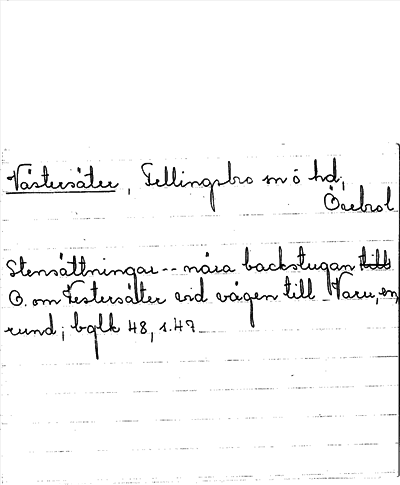 Västersäter, Fellingsbro sn ö hd,
Örebrol
Stensättningar -- nära backstugan till
O. om Vestersätter vid vägen till Varu, en,
rund; bglk 48, s. 47